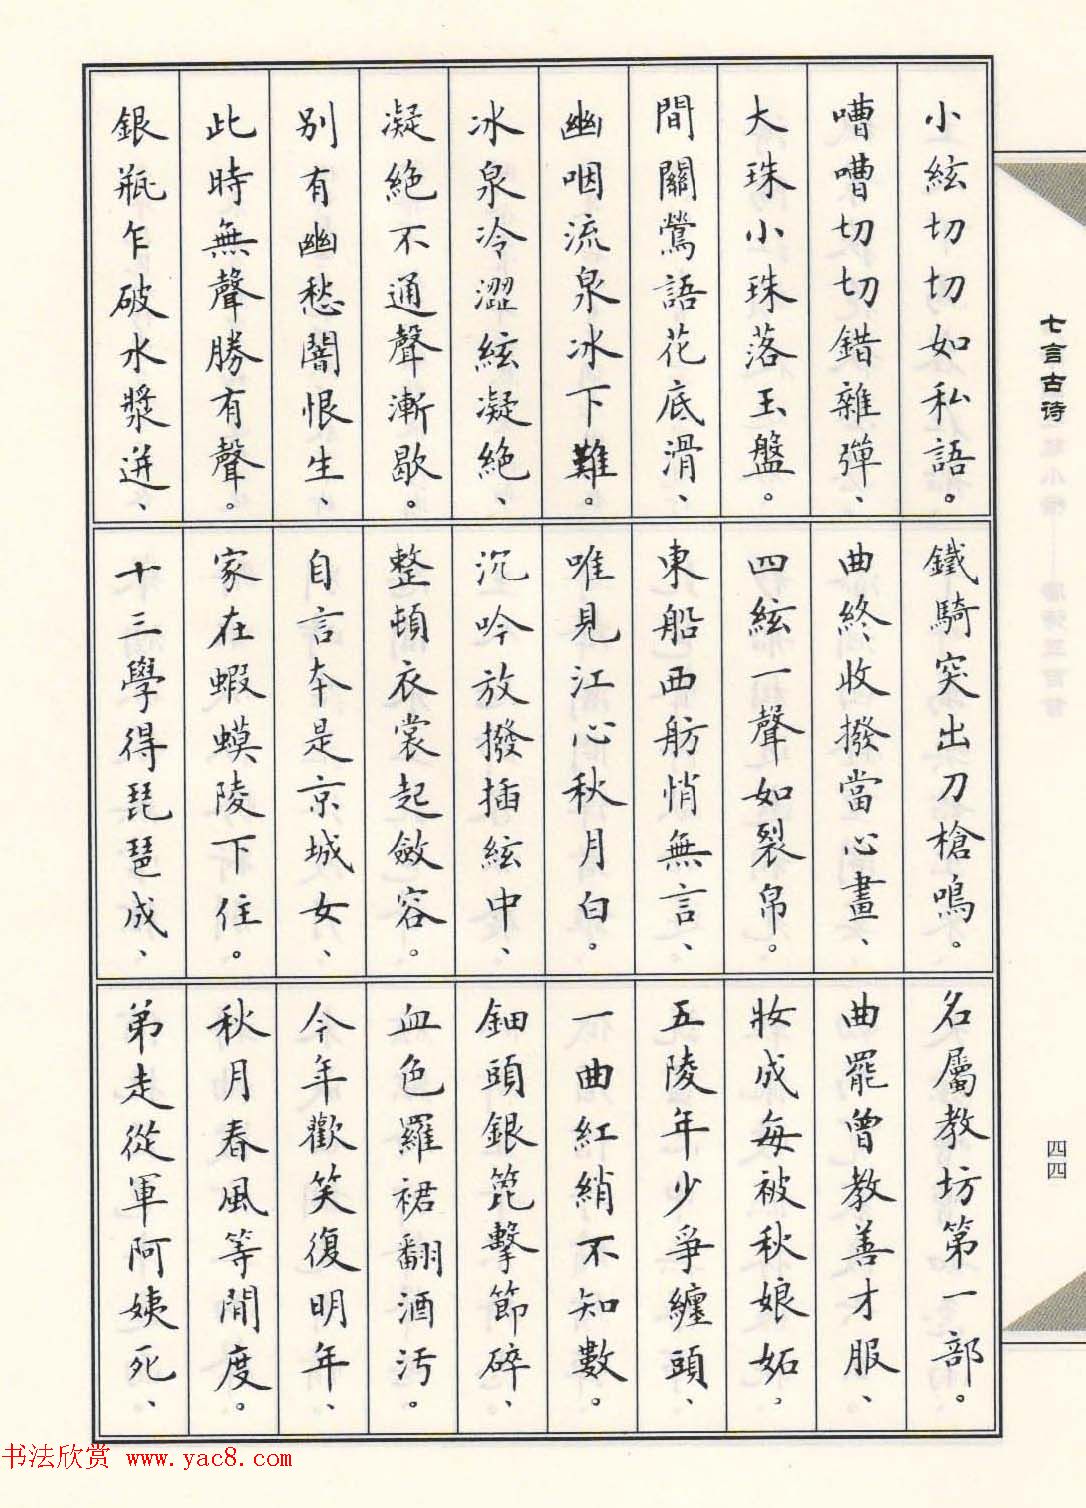 小絃切切如私語。
嘈嘈切切錯雜彈、
大珠小珠落玉盤。
間關鶯語花底滑、
幽咽流泉冰下難。
冰泉冷澀絃凝絶、
凝絶不通聲漸歇。
别有幽愁闇恨生、
此時無聲勝有聲。
銀瓶乍破水漿迸、
鐵騎突出刀槍鳴。
曲終收撥當心畫、
四絃一聲如裂帛。
東船西舫悄無言、
唯見江心秋月白。
沉吟放撥插絃中、
整頓衣裳起斂容。
自言本是京城女、
家在蝦蟆陵下住。
十三學得琵琶成、
名屬教坊第一部。
曲罷曾教善才服、
妝成每被秋娘妬。
五陵年少爭纏頭、
一曲紅綃不知數。
鈿頭銀篦擊節碎、
血色羅裙翻酒汚。
今年歡笑復明年、
秋月春風等閒度。
弟走從軍阿姨死、
七言古诗
四四
书法欣赏 www.yac8.com